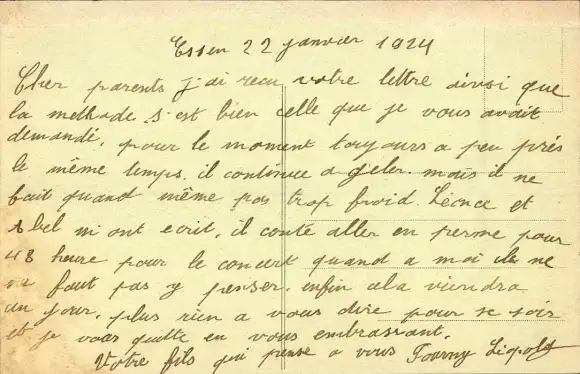 Essen 22 janvier 1924
Cher parents j'ai recu votre lettre ainsi que
la methode s'est bien celle que je vous avait
demandé, pour le moment toujours a peu près
le même temps, il continue a gêler. mais il ne
fait quand même pas trop froid. Léonce et
Abel m'ont ecrit, il conte aller en perme pour
48 heure pour le concert quand a moi il ne
me faut pas y penser. enfin cela viendra
un jour, plus rien a vous dire pour se soir
et je vous quitte en vous embrassant.
Votre fils qui pense a vous Fourny Léopold